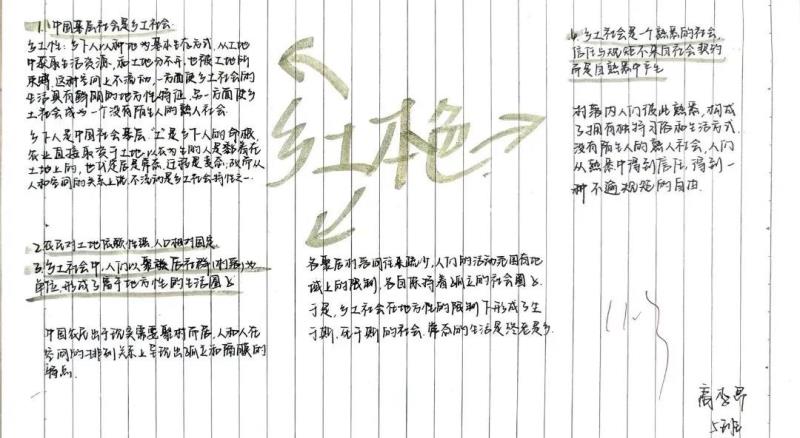 1. 中国基层社会是乡土社会.
乡土性: 乡下人以种地为基本生存方式, 从土地
中获取生活资源, 和土地分不开, 也被土地所
束缚, 这种空间上不流动, 一方面使乡土社会的
生活具有鲜明的地方性特征, 另一方面使乡
土社会成为一个没有陌生人的熟人社会.
乡下人是中国社会基层, "土"是乡下人的命脉,
农业直接取资于土地, 以农为生的人是黏着在
土地上的, 世代定居是常态, 迁移是变态, 故而从
人和空间的关系上说, 不流动是乡土社会特性之一.
乡土本色
2. 农民对土地依赖性强, 人口相对固定.
3. 乡土社会中, 人们以聚族居社群(村落)为
单位, 形成了属于地方性的生活圈子
中国农民出于现实需要聚村而居, 人和人在
空间的排列关系上呈现出孤立和隔膜的
特点.
各基层村落间往来疏少, 人们的活动范围有地
域上的限制, 各自保持着孤立的社会圈子
于是, 乡土社会在地方性的限制下形成了生
于斯, 死于斯的社会. 常态的生活是终老是乡.
4. 乡土社会是一个熟悉的社会,
信任与规矩不来自社会契约
而是自熟悉中产生
村落内人们彼此熟悉, 构成
了拥有独特习俗和生活方式
没有陌生人的熟人社会, 人们
从熟悉中得到信任, 得到一
种不逾规矩的自由.
11.3
5班